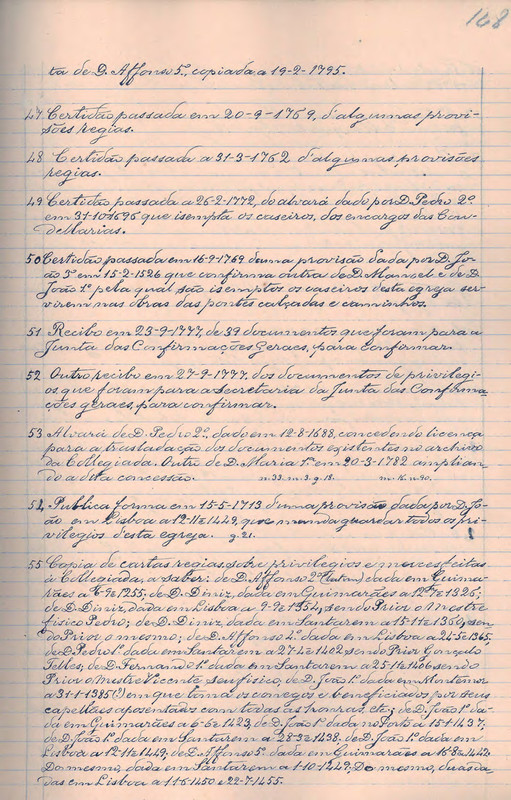 148
ta de D. Affonso 5º, copiada a 19-2-1795.
47 Certidão passada em 20-9-1769, d'algumas provi-
sões regias.
48 Certidão passada a 31-3-1762 d'algumas provisões
regias.
49 Certidão passada a 26-2-1772, do alvará dado por D. Pedro 2º
em 31-10-1696 que isempta os caseiros, dos encargos das Cou-
delarias.
50 Certidão passada em 16-9-1769 de uma provisão dada por D. Jo-
ão 3º em 15-2-1526 que confirma outra de D. Manuel e de D.
João 1º pela qual são isemptos os caseiros desta egreja ser-
virem nas obras das pontes calçadas e caminhos.
51 Recibo em 23-9-1777, de 39 documentos que foram para a
Junta das Confirmações Geraes, para confirmar.
52 Outro recibo em 27-9-1777, dos documentos de privilegi-
os que foram para a secretaria da Junta das Confirma-
ções geraes, para confirmar.
53 Alvará de D. Pedro 2º, dado em 12-8-1688, concedendo licença
para a trasladação dos documentos existentes no archivo
da Collegiada. Outro de D. Maria 1ª em 20-3-1782 amplian-
do a dita concessão. m. 33. m. 3. g. 18. m. 16. n. 40.
54 Publica forma em 15-5-1713 d'uma provisão dada por D. Jo-
ão em Lisboa a 12-11-1449, que manda guardar todos os pri-
vilegios desta egreja. g. 21.
55 Copia de cartas regias, sobre privilegios e mercês feitas
á Collegiada, a saber: de D. Affonso 2º dada em Guima-
rães a 1255; de D. Diniz, dada em Guimarães a 1326;
de D. Diniz, dada em Lisboa a 9-9-1354, sendo Prior o Mestre
fisico Pedro; de D. Diniz, dada em Santarem a 15-11-1360, sen-
do Prior o mesmo; de D. Affonso 4º dada em Lisboa a 24-5-1365.
de D. Pedro 1º dada em Santarem a 27-4-1402 sendo Prior Gonçalo
Telles; de D. Fernando 1º dada em Santarem a 25-11-1406 sendo
Prior o Mestre Vicente seu fisico; de D. João 1º dada em Montemor
a 31-1-1385(?) em que toma os conegos e beneficiados por seus
capellães aposentados com todas as honras, etc; de D. João 1º da-
da em Guimarães a 6-6-1423; de D. João 1º dada no Porto a 15-1-1437,
de D. João 1º dada em Santarem a 28-3-1438. de D. João 1º dada em
Lisboa a 12-11-1449; de D. Affonso 5º dada em Guimarães a 16-8-1442
Do mesmo, dada em Santarem a 1-10-1449; Do mesmo, duas da-
das em Lisboa a 11-6-1450 e 22-7-1455.